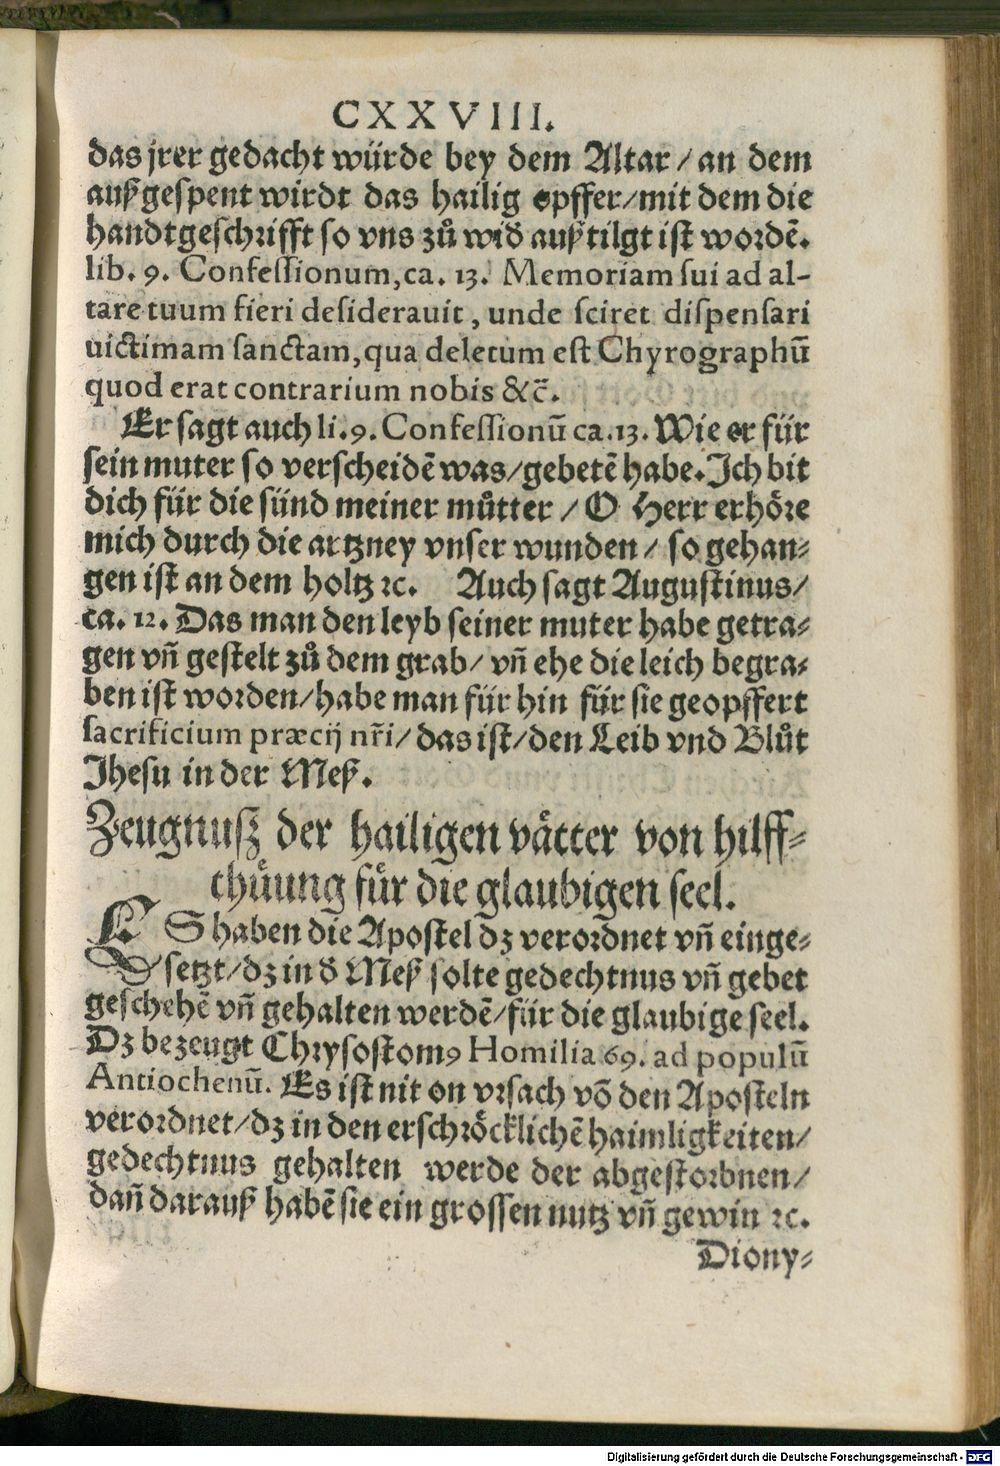 CXXVIII.
das jrer gedacht würde bey dem Altar / an dem
außgespent wirdt das hailig opffer/mit dem die
handtgeschrifft so vns zů wid̕ auß tilgt ist wordē.
lib. 9. Confessionum, ca. 13. Memoriam sui ad al-
tare tuum fieri desiderauit, unde sciret dispensari
uictimam sanctam, qua deletum est Chyrographū
quod erat contrarium nobis &c̄.
Er sagt auch li. 9. Confessionū ca. 13. Wie er für
sein muter so verscheidē was/gebetē habe. Ich bit
dich für die sünd meiner můtter / O Herr erhöre
mich durch die artzney vnser wunden / so gehan⸗
gen ist an dem holtz ꝛc. Auch sagt Augustinus/
ca. 12. Das man den leyb seiner muter habe getra⸗
gen vñ gestelt zů dem grab/ vñ ehe die leich begra⸗
ben ist worden/habe man für hin für sie geopffert
sacrificium præcij nr̃i/ das ist/den Leib vnd Blůt
Jhesu in der Meß.
Zeugnuß der hailigen vätter von hilff⸗
thüung für die glaubigen seel.
ES haben die Apostel dz verordnet vñ einge⸗
setzt/dz in d̕ Meß solte gedechtnus vñ gebet
geschehē vñ gehalten werdē/für die glaubige seel.
Dz bezeugt Chrysostomꝰ Homilia 69. ad populū
Antiochenū. Es ist nit on vrsach vō den Aposteln
verordnet/dz in den erschröcklichē haimligkeiten/
gedechtnus gehalten werde der abgestorbnen/
dañ darauß habē sie ein grossen nutz vñ gewin ꝛc.
Diony⸗
Digitalisierung gefördert durch die Deutsche Forschungsgemeinschaft - DFG